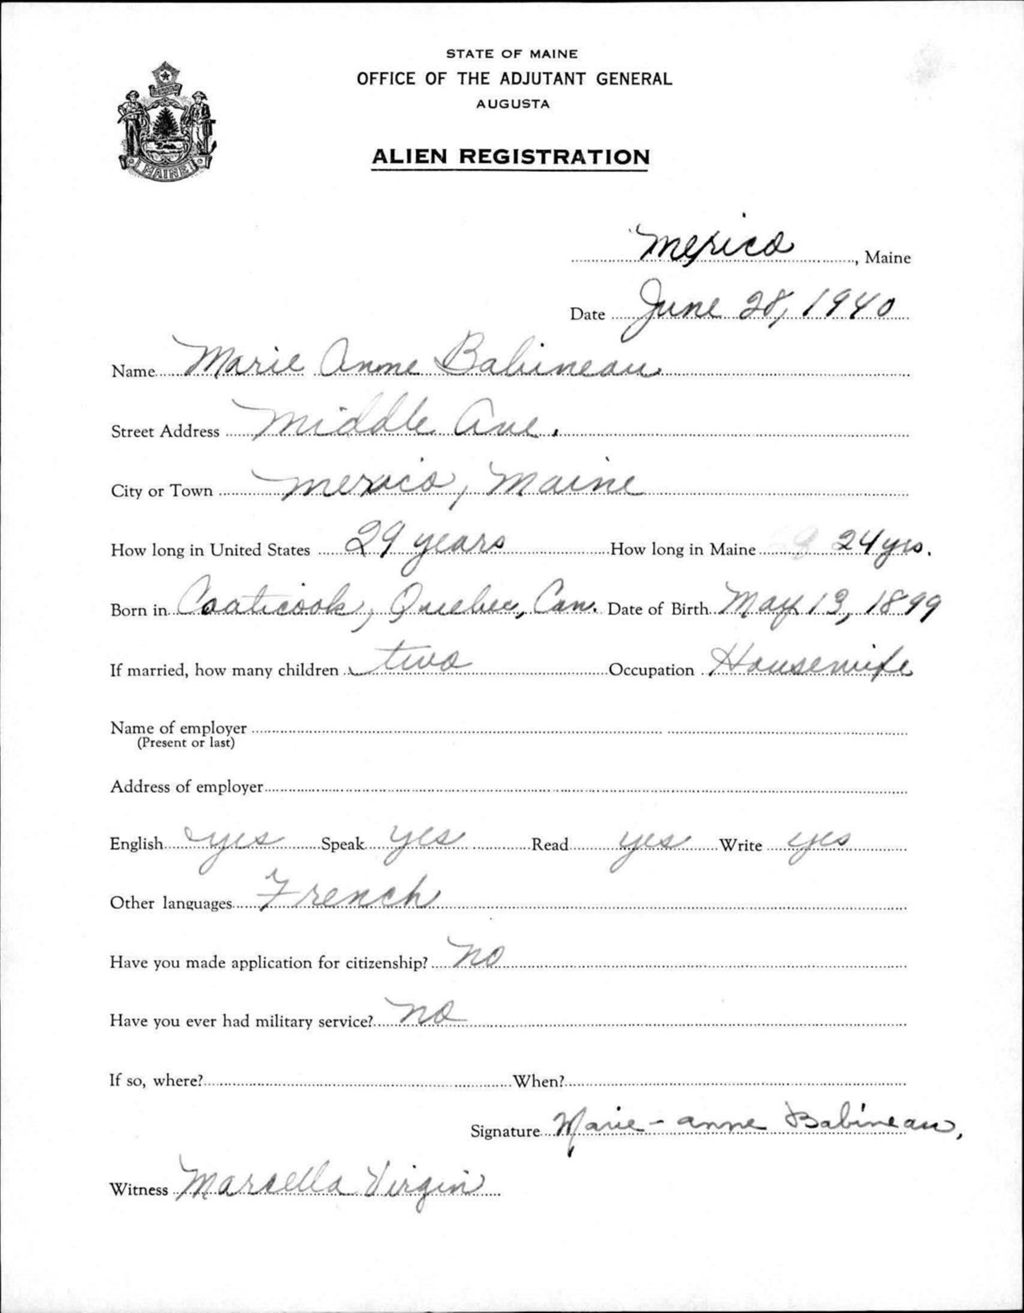 STATE OF MAINE
OFFICE OF THE ADJUTANT GENERAL
AUGUSTA
ALIEN REGISTRATION
MAINE
Mexico, Maine
Date June 28, 1940
Name Marie Anne Babineau
Street Address Middle Ave.
City or Town Mexico, Maine
How long in United States 29 years How long in Maine 24 yrs.
Born in Coaticook, Quebec, Can. Date of Birth May 13, 1899
If married, how many children two Occupation Housewife
Name of employer
(Present or last)
Address of employer
English yes Speak yes Read yes Write yes
Other languages French
Have you made application for citizenship? No
Have you ever had military service? no
If so, where? When?
Signature Marie-Anne Babineau,
Witness Marcella Virgin